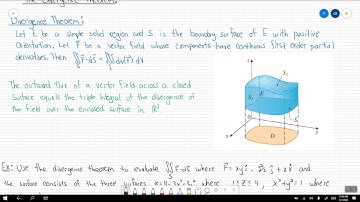 The Divergence Theorem:
Divergence Theorem:
Let E be a simple solid region and S is the boundary surface of E with positive
orientation. Let F⃗ be a vector field whose components have continuous first order partial
derivatives. Then ∬ F⃗·dS⃗ = ∭ div(F⃗) dV
S E
The outward flux of a vector field across a closed
surface equals the triple integral of the divergence of
the field over the enclosed surface in ℝ³
Ex: Use the divergence theorem to evaluate ∬ F⃗·dS⃗ where F⃗ =
the surface consists of the three surfaces z=4-3x²-3y² where 1≤z≤4, x²+y²=1 where